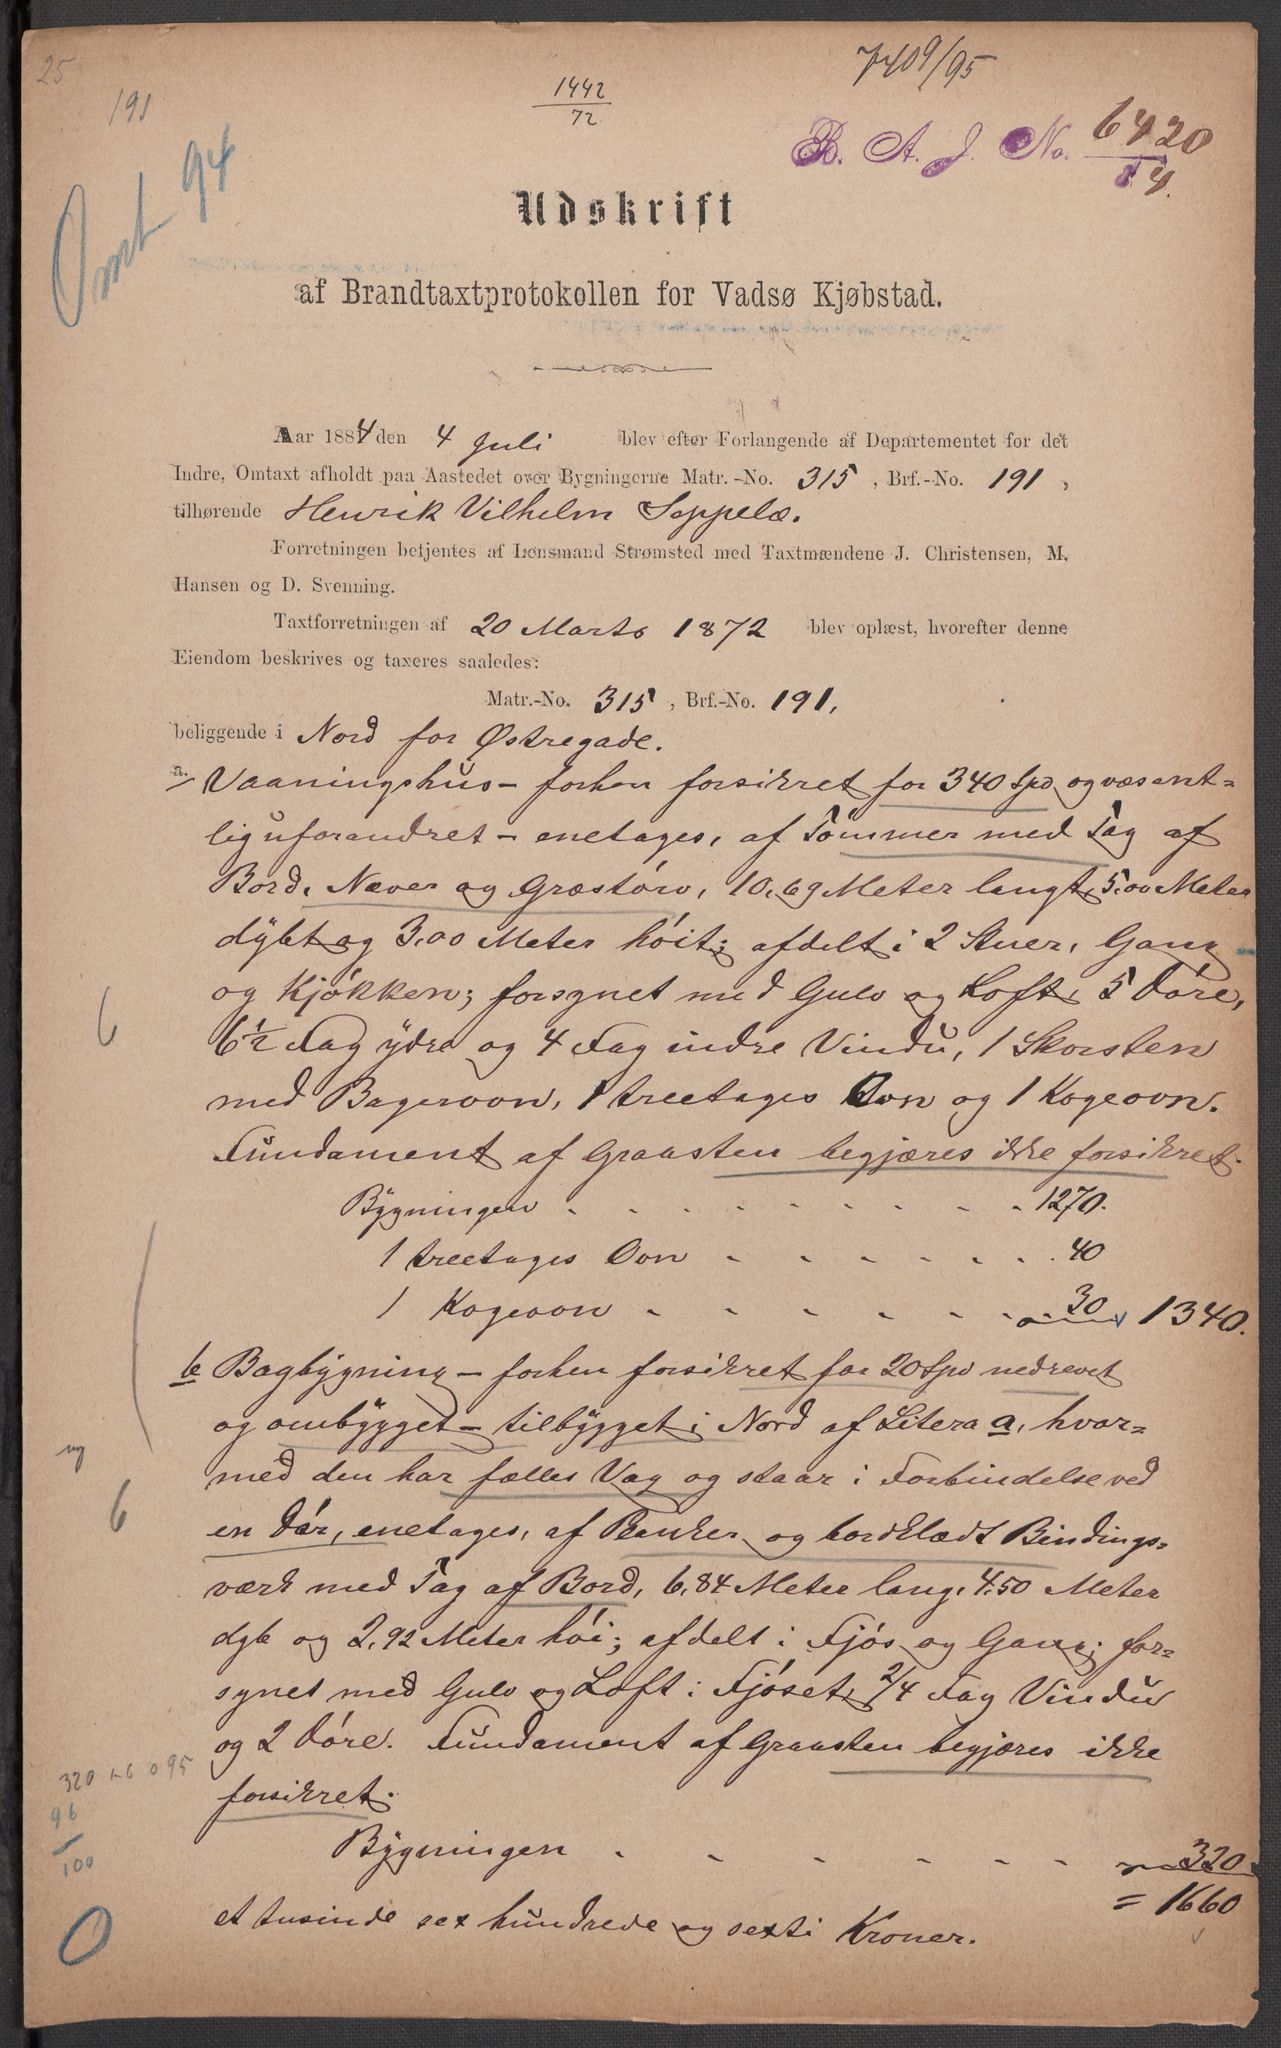 25
191
1442
72
7409/95
B. A. J. No. 6420
84.
Omt 94
Udskrift
af Brandtaxtprotokollen for Vadsø Kjøbstad.
Aar 1884 den 4 Juli blev efter Forlangende af Departementet for det
Indre, Omtaxt afholdt paa Aastedet over Bygningerne Matr.-No. 315, Brf.-No. 191,
tilhørende Henrik Vilhelm Seppelæ.
Forretningen betjentes af Lensmand Strømsted med Taxtmændene J. Christensen, M.
Hansen og D. Svenning.
Taxtforretningen af 20 Marts 1872 blev oplæst, hvorefter denne
Eiendom beskrives og taxeres saaledes:
Matr.-No. 315, Brf.-No. 191.
beliggende i Nord for Østregade.
a. Vaaningshus – forhen forsikret for 340 Spd og væsent=
lig uforandret – enetages, af Tømmer med Tag af
Bord, Næver og Græstörv, 10,69 Meter langt, 5,00 Meter
dybt og 3,00 Meter höit; afdelt i 2 Stuer, Gang
og Kjökken; forsynet med Gulv og Loft, 5 Döre,
6 1/2 Fag ydre og 4 Fag indre Vindu, 1 Skorsten
6
med Bagerovn, 1 treetages Ovn og 1 Kogeovn.
Fundament af Graasten begjæres ikke forsikret.
Bygningen . . . . . . . . 1270.
1 treetages Ovn . . . . . . 40
1 Kogeovn . . . . . . 30 1340.
b Bagbygning – forhen forsikret for 20 Spd nedrevet
og ombygget – tilbygget i Nord af Litera a, hvor=
ny
med den har fælles Væg og staar i Forbindelse ved
6
en Dör, enetages, af Planker og bordklædt Bindings=
værk med Tag af Bord, 6,84 Meter lang, 4,50 Meter
dyb og 2,92 Meter höi; afdelt i Fjös og Gang; for=
synet med Gulv og Loft i Fjöset, 2/4 Fag Vindu
og 2 Döre. Fundament af Graasten begjæres ikke
forsikret.
96
100
0
Bygningen . . . . . . 320
= 1660
et tusinde sex hundrede og sexti Kroner.